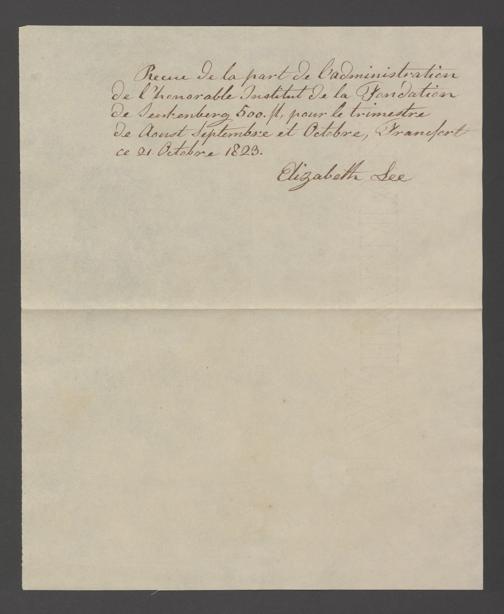 Recue de la part de l'administration
de l'honorable Institut de la Fondation
de Senkenberg 500.fl, pour le trimestre
de Aoust Septembre et Octobre, Francfort
ce 21 Octobre 1823.
Elizabeth Lee